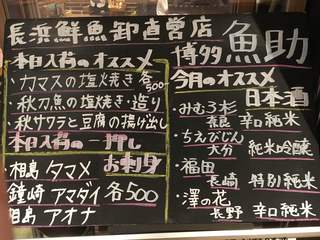 長浜鮮魚卸直営店
博多 魚助
本日入荷のオススメ
・カマスの塩焼き 各500
・秋刀魚の塩焼き・造り
・秋サワラと豆腐の揚げ出し
本日入荷の一押し
お刺身
相島 タマメ
鐘崎 アマダイ 各500
相島 アオナ
今月のオススメ
日本酒
・みむろ杉
奈良 辛口純米
・ちえびじん
大分 純米吟醸
・福田
長崎 特別純米
・澤の花
長野 辛口純米